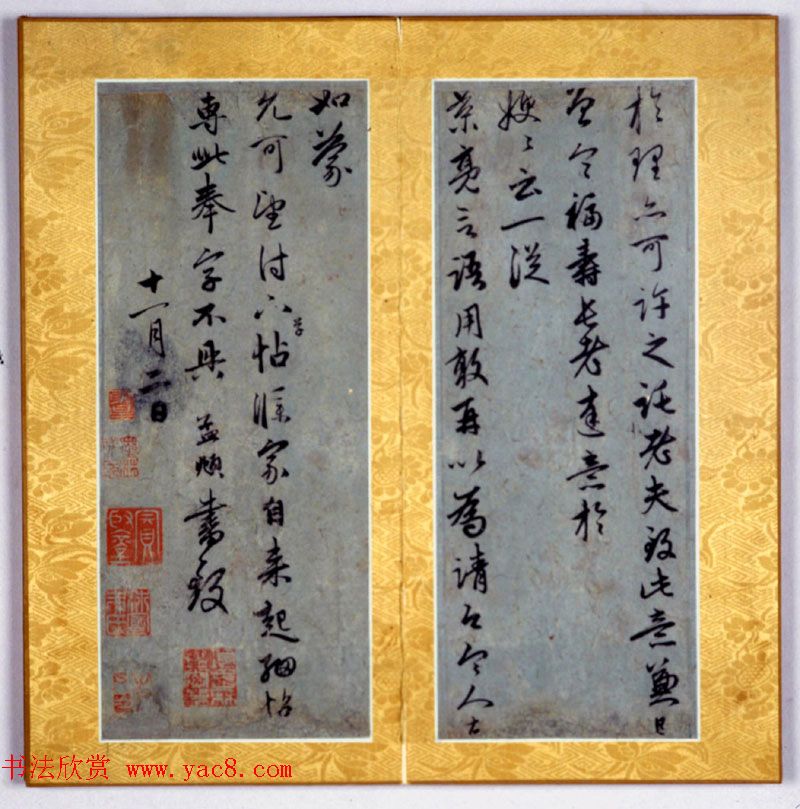 於理亦可許之託老夫致此意兼已
曾令福壽長老達意於
嫂々云一從
蒙亮言語用敢再以為請
令人
如蒙
允可望付一
字
帖候家自來起細帖
專此奉字不具 孟頫 書致
十一月二日
书法欣赏 www.yac8.com